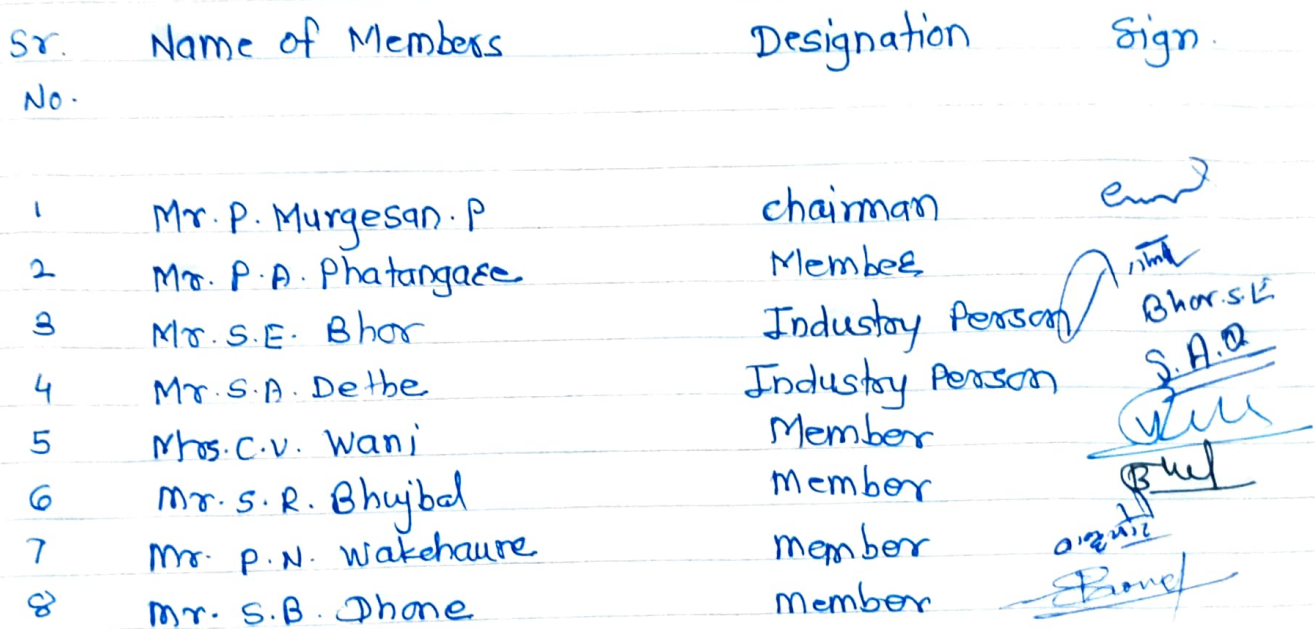 Sr. Name of Members Designation Sign.
No.
1 Mr. P. Murgesan. P chairman
2 Mr. P. A. Phatangare Member
3 Mr. S. E. Bhor Industry Person Bhor. S. E
4 Mr. S. A. Dethe Industry Person S. A. D
5 Mrs. C. V. Wani Member
6 Mr. S. R. Bhujbal Member
7 Mr. P. N. Wakchaure Member
8 Mr. S. B. Dhone Member